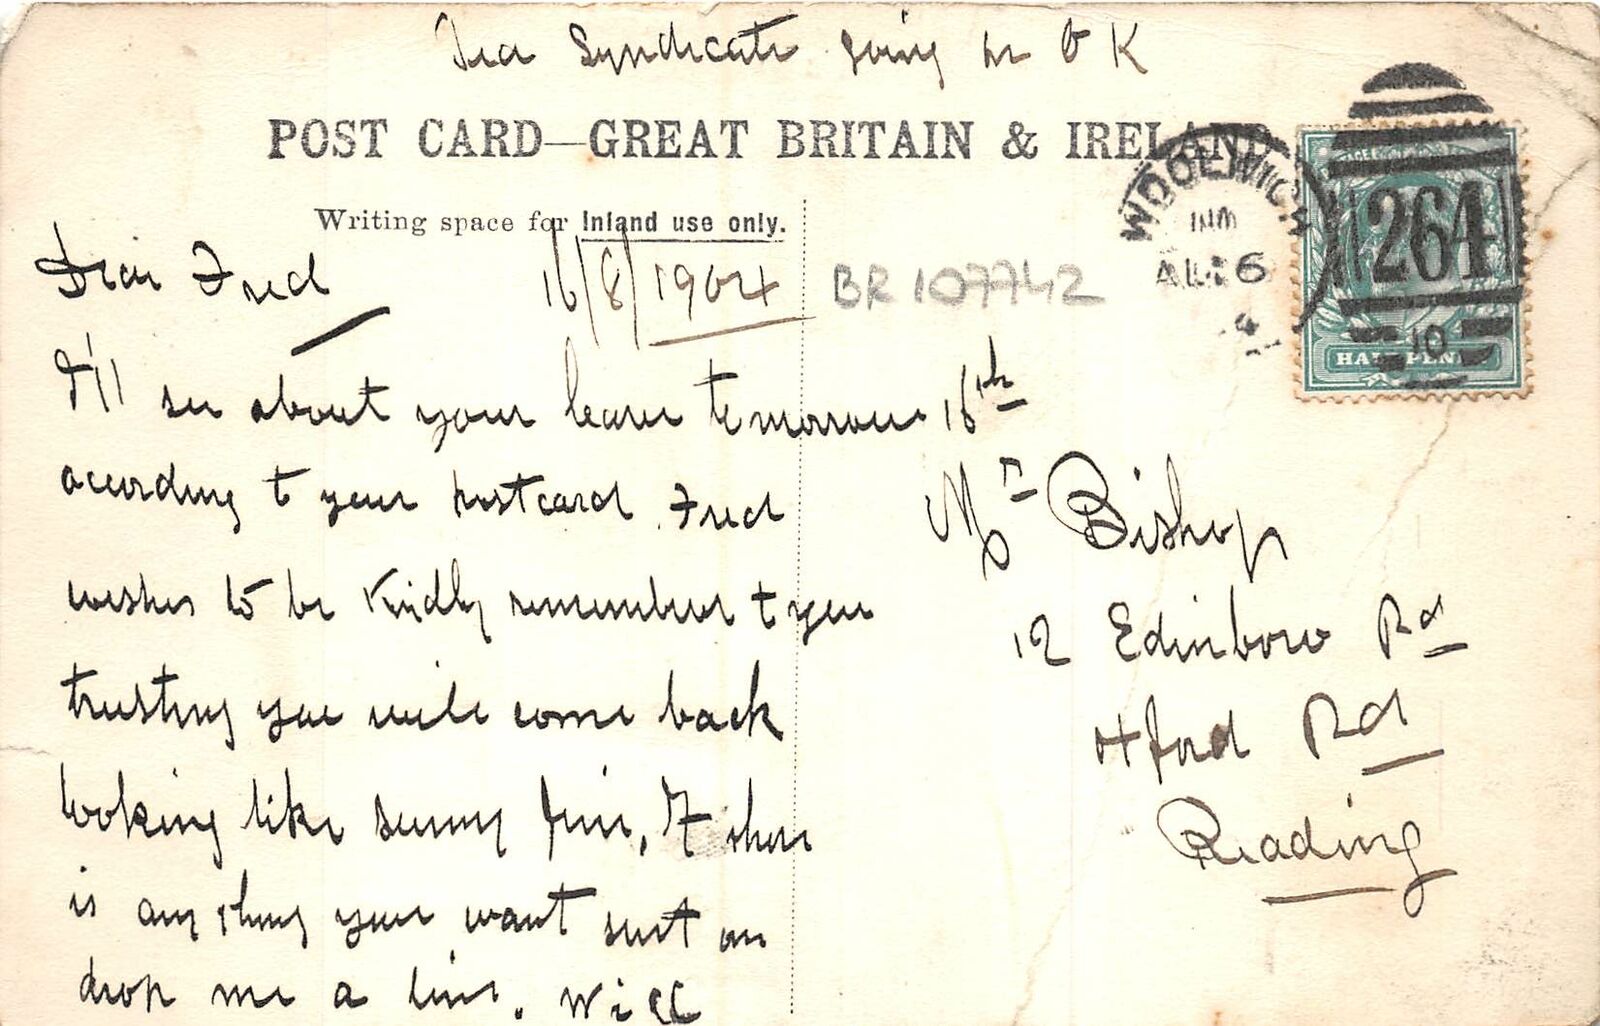 Tea Syndicate going on O K
POST CARD—GREAT BRITAIN & IRELAND
Writing space for Inland use only.
WOOLWICH
AU 16
4
264
10
HALFPENNY
BR 107742
Dear Fred
16/8/1904
I'll see about your leave tomorrow 16th
acording to your postcard Fred
wishes to be kindly remember to you
trusting you will come back
looking like sunny Jim, If there
is anything you want just
drop me a line. Will
Mr Bishop
12 Edinbow Rd
Oxford Rd
Reading